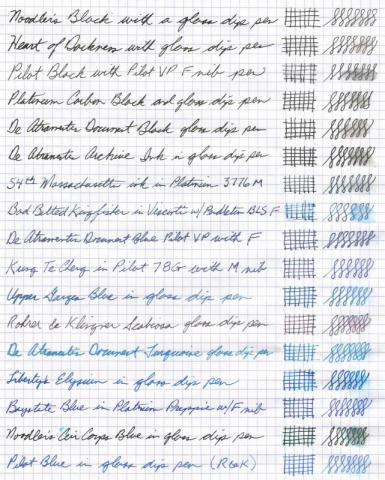 Noodler's Black with a glass dip pen
Heart of Darkness with glass dip pen
Pilot Black with Pilot VP F nib pen
Platinum Carbon Black and glass dip pen
De Atramentis Document Black glass dip pen
De Atramentis Archive Ink in glass dip pen
54th Massachusetts ink in Platinum 3776 M
Bad Belted Kingfisher in Visconti w/ Pendleton BLS F
De Atramentis Document Blue Pilot VP with F
Kung Te Cheng in Pilot 78G with M nib
Upper Ganges Blue in glass dip pen
Rohrer & Klingner Scabiosa glass dip pen
De Atramentis Document Turquoise glass dip pen
Liberty's Elysium in glass dip pen
Baystate Blue in Platinum Preppie w/ F nib
Noodler's Air Corps Blue in glass dip pen
Pilot Blue in glass dip pen